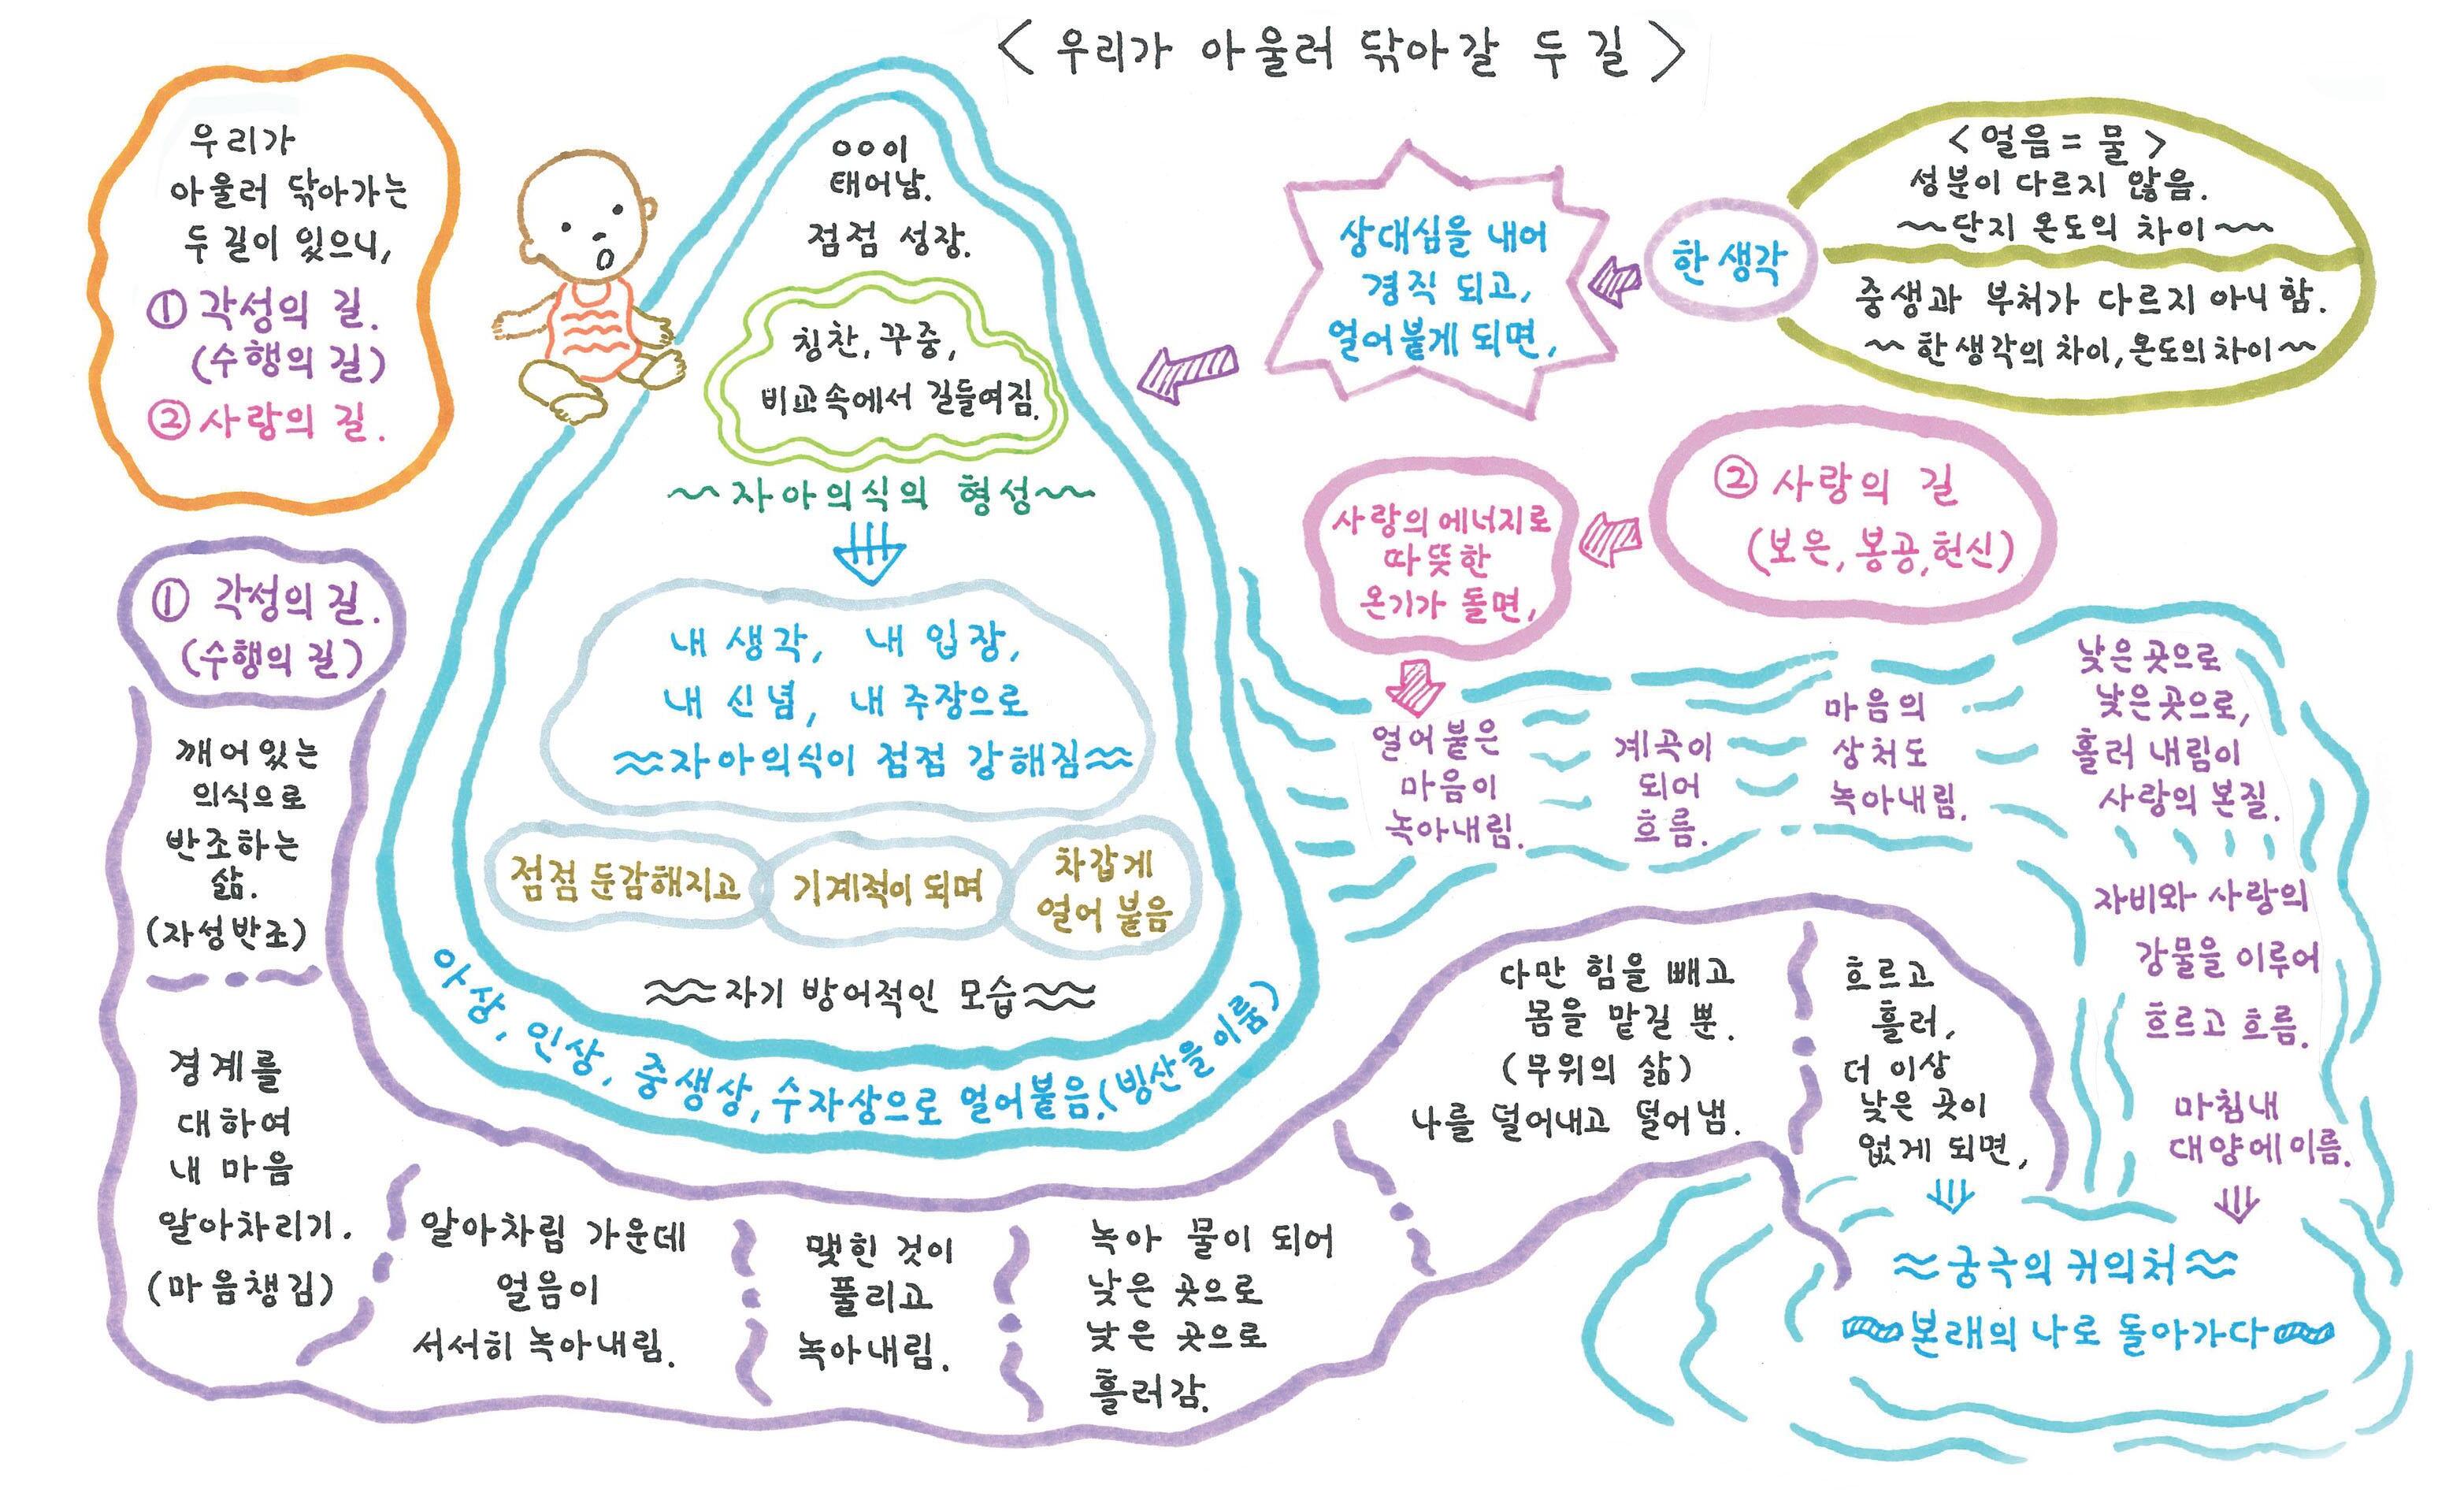 < 우리가 아울러 닦아갈 두 길 >
우리가
아울러 닦아가는
두 길이 있으니,
① 각성의 길.
(수행의 길)
② 사랑의 길.
ㅇㅇ이
태어남.
점점 성장.
칭찬, 꾸중,
비교속에서 길들여짐.
~자아의식의 형성~
내 생각, 내 입장,
내 신념, 내 주장으로
≈자아의식이 점점 강해짐≈
점점 둔감해지고
기계적이 되며
차갑게
얼어 붙음
≈자기 방어적인 모습≈
아상, 인상, 중생상, 수자상으로 얼어붙음.(빙산을 이룸)
< 얼음 = 물 >
성분이 다르지 않음.
~단지 온도의 차이~
중생과 부처가 다르지 아니 함.
~ 한 생각의 차이, 온도의 차이~
한 생각
상대심을 내어
경직 되고,
얼어 붙게 되면,
② 사랑의 길
(보은, 봉공, 헌신)
사랑의 에너지로
따뜻한
온기가 돌면,
얼어 붙은
마음이
녹아내림.
계곡이
되어
흐름.
마음의
상처도
녹아내림.
낮은 곳으로
낮은 곳으로,
흘러 내림이
사랑의 본질.
자비와 사랑의
강물을 이루어
흐르고 흐름.
마침내
대양에 이름.
① 각성의 길.
(수행의 길)
깨어있는
의식으로
반조하는
삶.
(자성반조)
경계를
대하여
내 마음
알아차리기.
(마음챙김)
알아차림 가운데
얼음이
서서히 녹아내림.
맺힌 것이
풀리고
녹아내림.
녹아 물이 되어
낮은 곳으로
낮은 곳으로
흘러감.
다만 힘을 빼고
몸을 맡길 뿐.
(무위의 삶)
나를 덜어내고 덜어냄.
흐르고
흘러,
더 이상
낮은 곳이
없게 되면,
≈궁극의 귀의처≈
본래의 나로 돌아가다